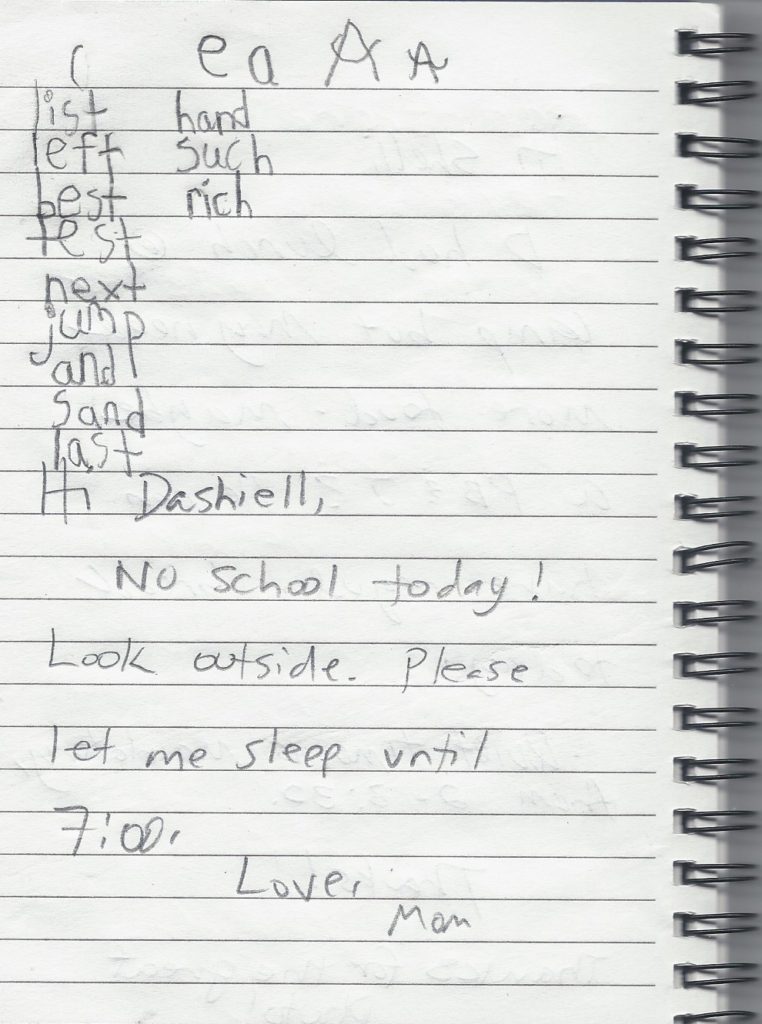 ( e a A A
list hand
left such
best rich
test
next
jump
and
sand
last
Hi Dashiell,
No school today!
Look outside. Please
let me sleep until
7:00.
Love,
Mom